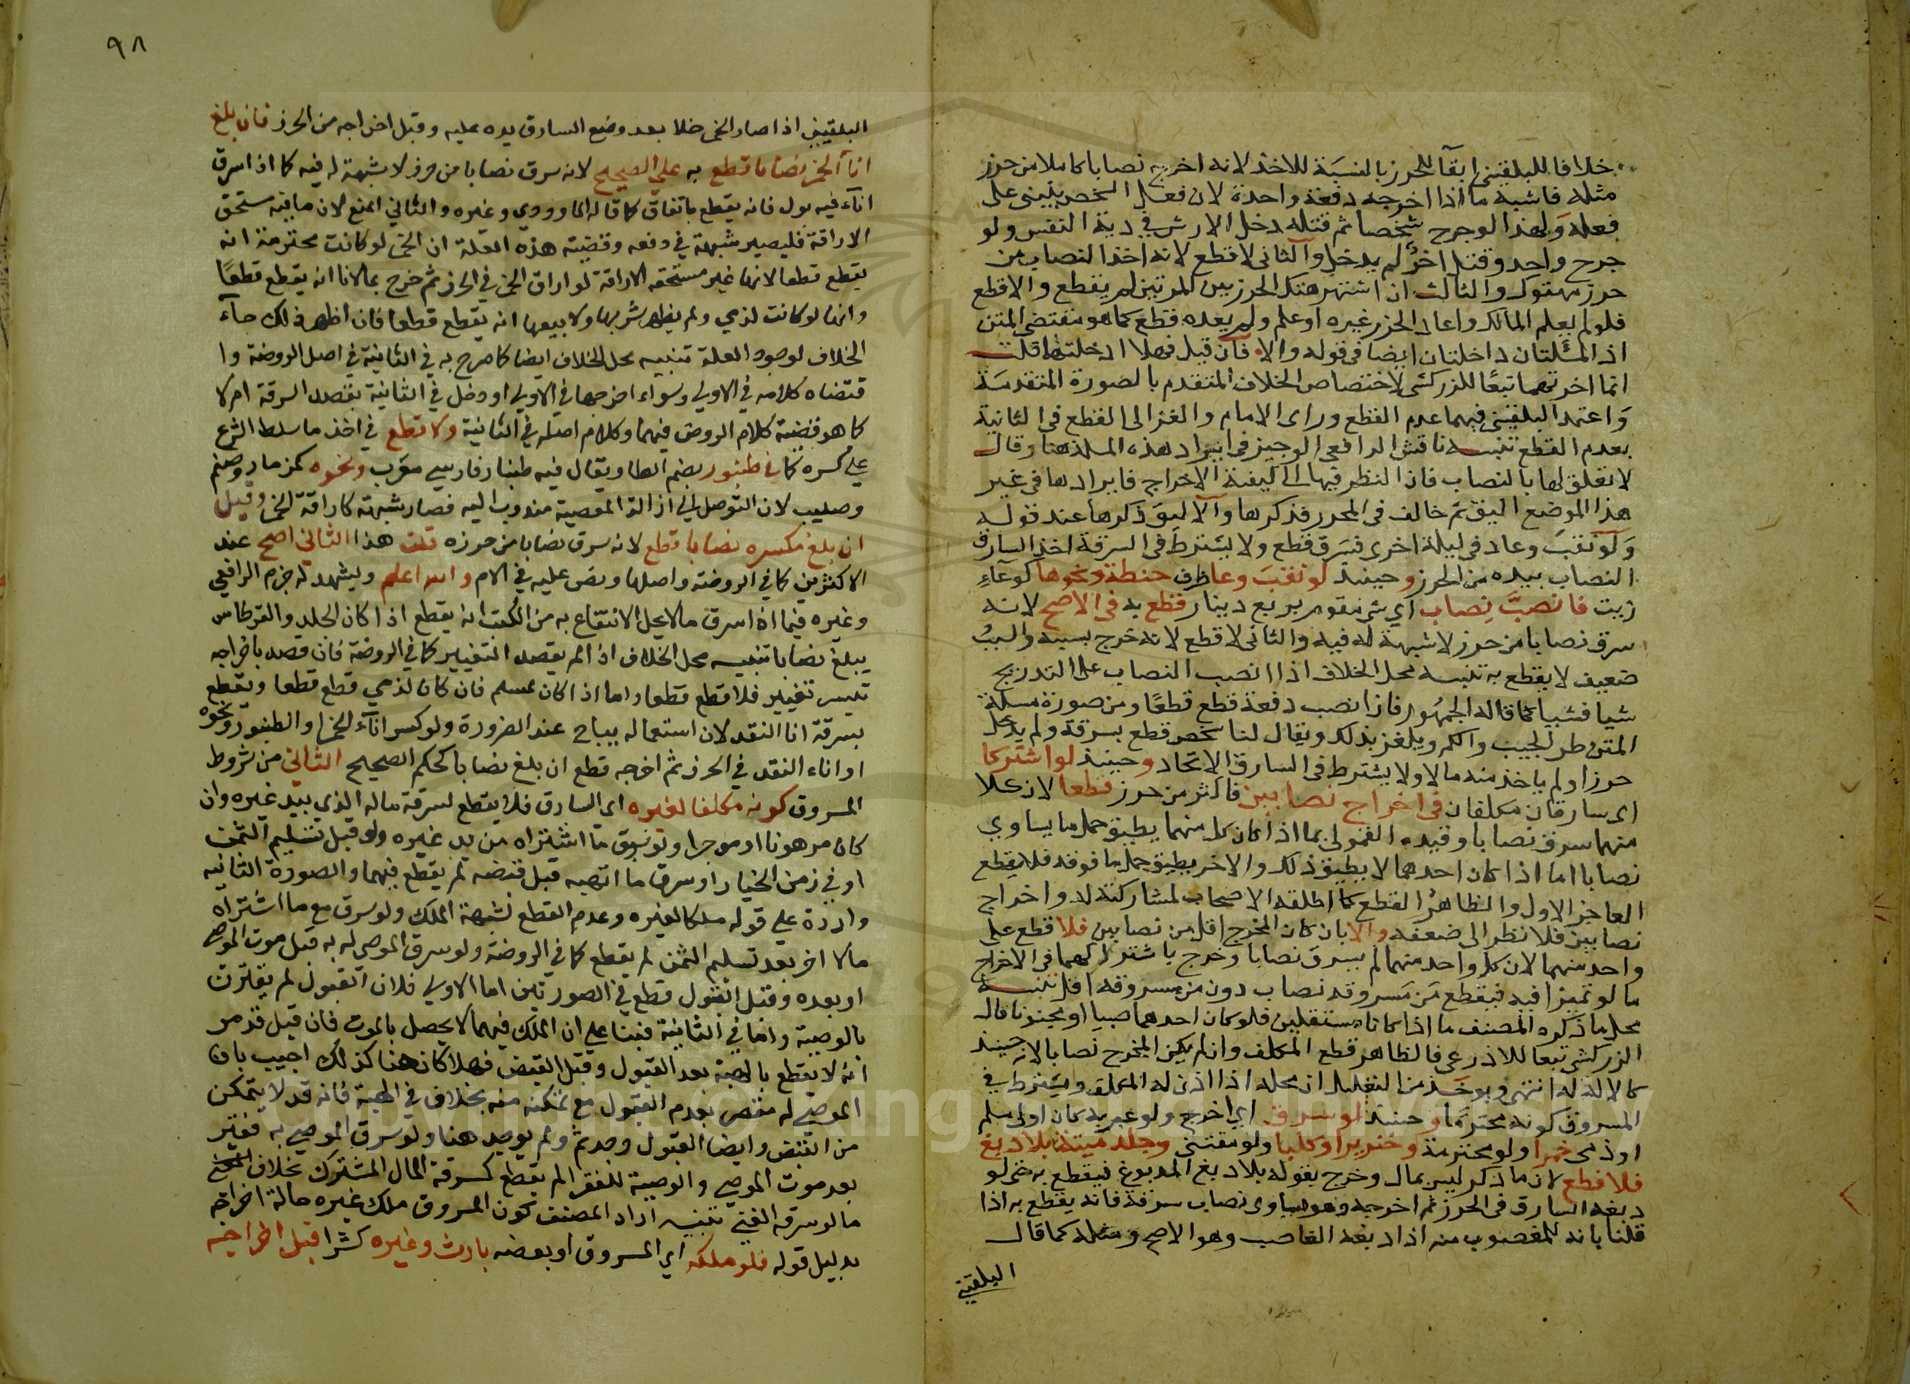 خلافا للبلقينى ابقآ للحرز بالنسبة للاخذ لانه اخرج نصابا كاملا من حرز
مثله فاشبه ما اذا اخرجه دفعة واحدة لان فعل الشخص يبنى على
فعله ولهذا لو جرح شخصا ثم قتله دخل الارش فى دية النفس ولو
جرح واحد وقتل اخر لم يدخل والثانى لا قطع لانه اخذ النصاب من
حرز مهتوك والثالث ان اشتهر هتك الحرز بين المرتين لم يقطع والا قطع
فلو لم يعلم المالك واعاد الحرز غيره او علم ولم يعده قطع كما هو مقتضى المتن
اذ المسئلتان داخلتان ايضا فى قوله والا فان قيل فهلا ادخلتها قلت
انما اخرتهما تبعا للزركشى لاختصاص الخلاف المتقدم بالصورة المتقدمة
واعتمد البلقينى فيهما عدم القطع وراى الامام والغزالى القطع فى الثانية
بعدم القطع تنبيه ناقش الرافعى الوجيز فى ايراد هذه المسئلة هنا وقال
لا تعلق لها بالنصاب فان النظر فيها الى كيفية الاخراج فايرادها فى غير
هذا الموضع اليق ثم خالف فى المحرر فذكرها والاليق ذكرها عند قوله
ولو نقب وعاد فى ليلة اخرى فسرق قطع ولا يشترط فى السرقة اخذ السارق
النصاب بيده من الحرز وحينئذ لو نقب وعا ظرف حنطة ونحوها كوعاء
زيت فانصب نصاب اي شى مقوم بربع دينار قطع به فى الاصح لانه
سرق نصابا من حرز لا شبهة له فيه والثانى لا قطع لانه خرج بسببه والسبب
ضعيف لا يقطع به تنبيه محل الخلاف اذا انصب النصاب على التدريج
شيا فشيا كما قاله الجمهور فان انصب دفعة قطع قطعا ومن صورة مسئلة
المتن طر الجيب والكم ويلغز بذلك ويقال لنا شخص قطع بسرقة ولم يدخل
حرزا ولم ياخذ منه مالا ولا يشترط فى السارق الاتحاد وحينئذ لو اشتركا
اى سارقان مكلفان فى اخراج نصابين فاكثر من حرز قطعا لان كلا
منهما سرق نصابا وقيده القمولى بما اذا كان كل منهما يطيق حمل ما يساوي
نصابا اما اذا كان احدهما لا يطيق ذلك والاخر يطيق حمل ما فوقه فلا يقطع
العاجز الاول والظاهر القطع كما اطلقه الاصحاب لمشاركته له واخراج
نصابين فلا نظر الى ضعفه والا بان كان المخرج اقل من نصابين فلا قطع على
واحد منهما لان كل واحد منهما لم يسرق نصابا وخرج باشتراكهما فى الاخراج
ما لو تميزا فيه فيقطع من مسروقه نصاب دون من مسروقه اقل تنبيه
محل ما ذكره المصنف ما اذا كانا مستقلين فلو كان احدهما صبيا او مجنونا قال
الزركشى تبعا للاذرعى فالظاهر قطع المكلف وان لم يكن المخرج نصابا لانه حينئذ
كالالة له انتهى ويوخذ من التعليل ان محله اذا اذن له المكلف ويشترط فى
المسروق كونه محترما وحينئذ لو سرق اي اخرج ولو غير يد كان اولى مسلم
او ذمى خمرا ولو محترمة وخنزيرا وكلبا ولو مقتنى وجلد ميتة بلا دبغ
فلا قطع لان ما ذكر ليس بمال وخرج بقوله بلا دبغ المدبوغ فيقطع به حتى لو
دبغه السارق فى الحرز ثم اخرجه وهو يساوى نصاب سرقة فانه يقطع به اذا
قلنا بانه للمغصوب منه اذا دبغه الغاصب وهو الاصح ومثله كما قال
البلقينى
٩٨
البلقيني اذا صار الخمر خلا بعد وضع السارق يده عليه وقبل اخراجه من الحرز فان بلغ
انآ الخمر نصابا قطع به على الصحيح لانه سرق نصابا من حرز لا شبهة له فيه كما اذا سرق
انآء فيه بول فانه يقطع باتفاق كما قاله الماوردي وغيره والثاني المنع لان ما فيه مستحق
الاراقة فليصير شبهة في دفعه وقضية هذه العلة ان الخمر لو كانت محترمة انه
يقطع قطعا لانها غير مستحقة الاراقة لو اراق الخمر في الحرز ثم خرج بالانا انه يقطع قطعا
وانها لو كانت لذمي ولم يظهر شربها ولا بيعها انه يقطع قطعا فان اظهر ذلك جاء
الخلاف لوجود العلة تنبيه محل الخلاف ايضا كما صرح به في الثانية في اصل الروضة وا
قتضاه كلامه في الاولي وسواء اخرجها في الاولي او دخل في الثانية بقصد السرقة ام لا
كما هو قضية كلام الروض فيهما وكلام اصله في الثانية ولا قطع في اخذ ما سلط الشرع
علي كسره كما في طنبور بضم الطا ويقال فيه طنبار فارسي معرب ونحوه كمزمار وصنم
وصليب لان التوصل الي ازالة المعصية مندوب اليه فصار شبهة كاراقة الخمر وقيل
ان بلغ مكسره نصابا قطع لانه سرق نصابا من حرزه قلت هذا الثاني اصح عند
الاكثرين كما في الروضة واصلها ونص عليه في الام والله اعلم ويشهد له جزم الرافعي
وغيره فيما اذا سرق ما لا يحل الانتفاع به من الكتب انه يقطع اذا كان الجلد والقرطاس
يبلغ نصابا تنبيه محل الخلاف اذا لم يقصد التغيير كما في الروضة فان قصد باخراجه
تيسر تغييره فلا قطع قطعا واما اذا كان لمسلم فان كان لذمي قطع قطعا ويقطع
بسرقة انا النقد لان استعماله يباح عند الضرورة ولو كسر انآء الخمر والطنبور ونحوه
او اناء النقد في الحرز ثم اخرجه قطع ان بلغ نصابا كحكم الصحيح الثاني من شروط
المسروق كونه مكلفا لغيره اي السارق فلا يقطع لسرقة ماله الذي بيد غيره وان
كان مرهونا او موجرا ولو سرق ما اشتراه من يد غيره ولو قبل تسليم الثمن
او في زمن الخيار او سرق ما اتهبه قبل قبضه لم يقطع فيهما والصورة الثانيه
واردة علي قوله ملكا لغيره وعدم القطع لشبهة الملك ولو سرق مع ما اشتراه
مالا اخر بعد تسليم الثمن لم يقطع كما في الروضة ولو سرق الموصي له به قبل موت الموصي
او بعده وقبل القبول قطع في الصورتين اما الاولي فلان القبول لم يقترن
بالوصية واما في الثانية فبنا علي ان الملك فيهما لا يحصل بالموت فان قيل قد مر
انه لا يقطع بالهبة بعد القبول وقبل القبض فهلا كان هنا كذلك اجيب بان
الموصي له مقصر بعدم القبول مع تمكنه منه بخلاف في الهبة فانه قد لا يتمكن
من القبض وايضا القبول وجد ثم ولم يوجد هنا ولو سرق الموصي به فقير
بعد موت الموصي والوصية للفقرا لم يقطع كسرقة المال المشترك بخلاف
ما لو سرقه الغني تنبيه اراد المصنف كون المسروق ملك غيره حالة اخراجه
بدليل قوله فلو ملكه اي المسروق او بعضه بارث وغيره كشرا قبل اخراجه